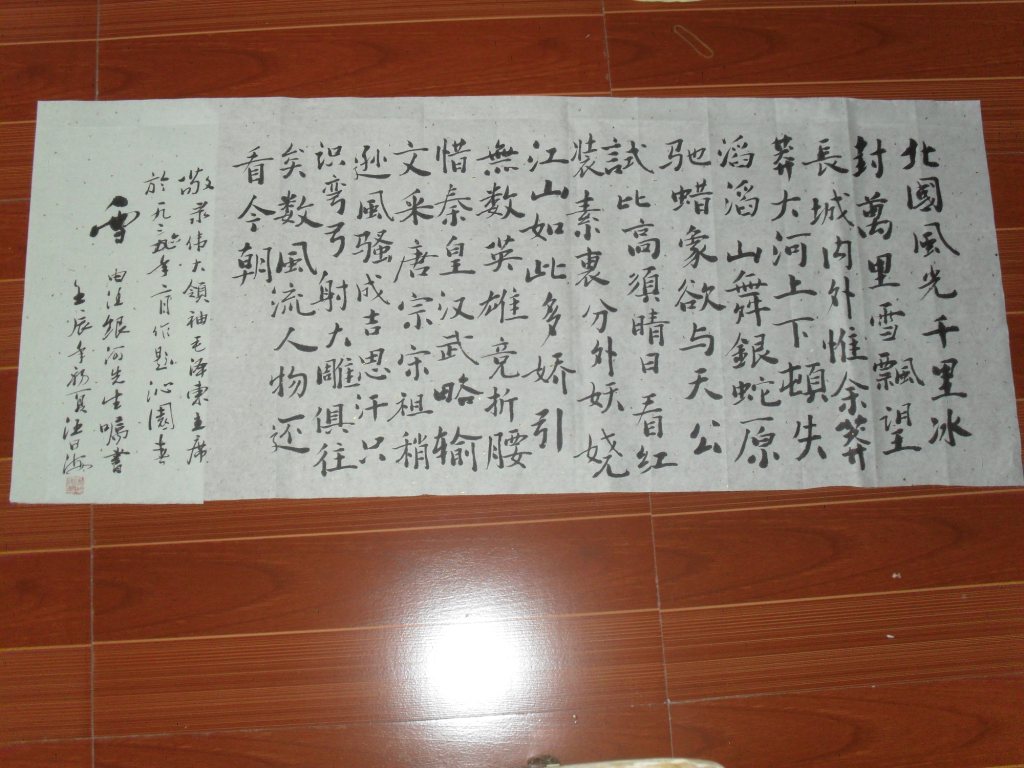 北國風光千里冰
封萬里雪飄望
長城内外惟余莽
莽大河上下頓失
滔滔山舞銀蛇原
驰蜡象欲与天公
試比高須晴日看红
装素裹分外妖娆
江山如此多娇引
無数英雄竞折腰
惜秦皇汉武略输
文采唐宗宋祖稍
逊風骚成吉思汗只
识弯弓射大雕俱往
矣数風流人物还
看今朝
敬录伟大領袖毛泽東主席
於一九三六年二月作题沁園春
雪 由汪银河先生嘱書
壬辰年初夏汪日海